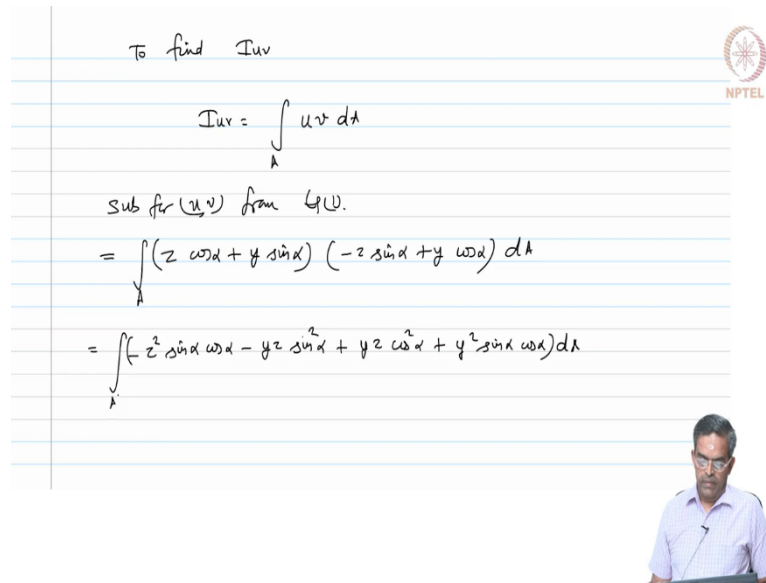 To find Iuv
NPTEL
Iuv = ∫ uv dA
A
sub for (u,v) from Eq(1).
= ∫ (z cosα + y sinα) (-z sinα + y cosα) dA
A
= ∫ (- z² sinα cosα - yz sin²α + yz cos²α + y² sinα cosα) dA
A